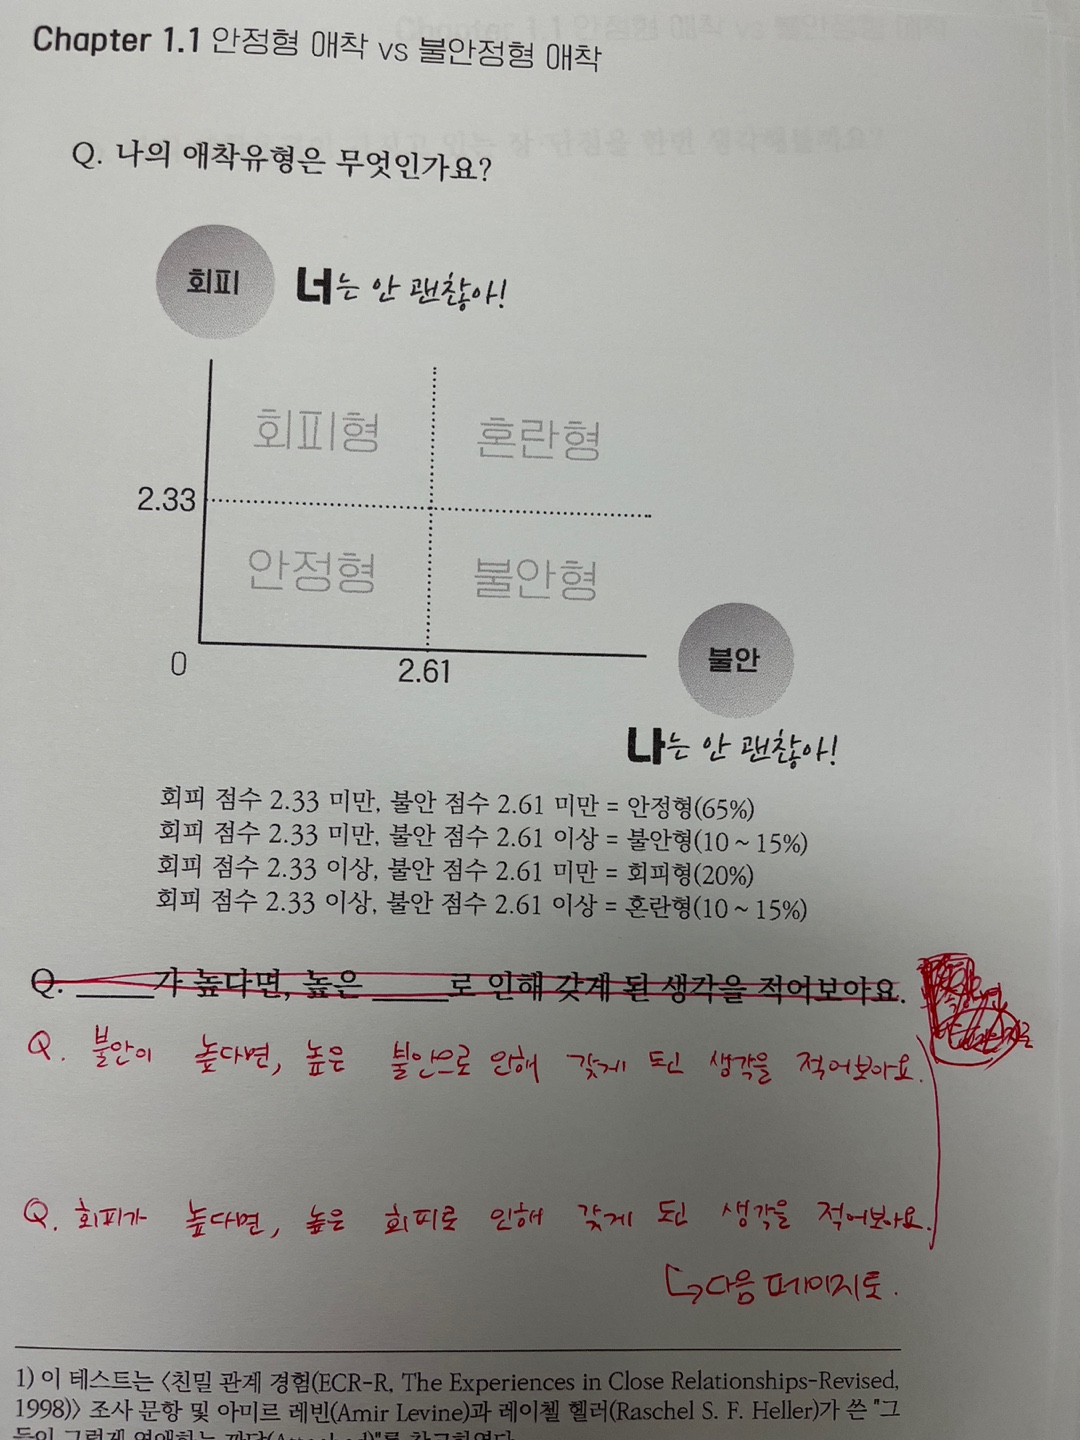 Chapter 1.1 안정형 애착 vs 불안정형 애착
Q. 나의 애착유형은 무엇인가요?
회피
너는 안 괜찮아!
회피형
혼란형
2.33
안정형
불안형
0
2.61
불안
나는 안 괜찮아!
회피 점수 2.33 미만, 불안 점수 2.61 미만 = 안정형(65%)
회피 점수 2.33 미만, 불안 점수 2.61 이상 = 불안형(10 ~ 15%)
회피 점수 2.33 이상, 불안 점수 2.61 미만 = 회피형(20%)
회피 점수 2.33 이상, 불안 점수 2.61 이상 = 혼란형(10 ~ 15%)
Q. _____가 높다면, 높은 _____로 인해 갖게 된 생각을 적어보아요.
Q. 불안이 높다면, 높은 불안으로 인해 갖게 된 생각을 적어보아요.
Q. 회피가 높다면, 높은 회피로 인해 갖게 된 생각을 적어보아요.
↳다음 페이지로.
1) 이 테스트는 〈친밀 관계 경험(ECR-R, The Experiences in Close Relationships-Revised,
1998)〉 조사 문항 및 아미르 레빈(Amir Levine)과 레이첼 헬러(Raschel S. F. Heller)가 쓴 "그
들이 그렇게 연애하는 까닭(Attached)"를 참고하였다.